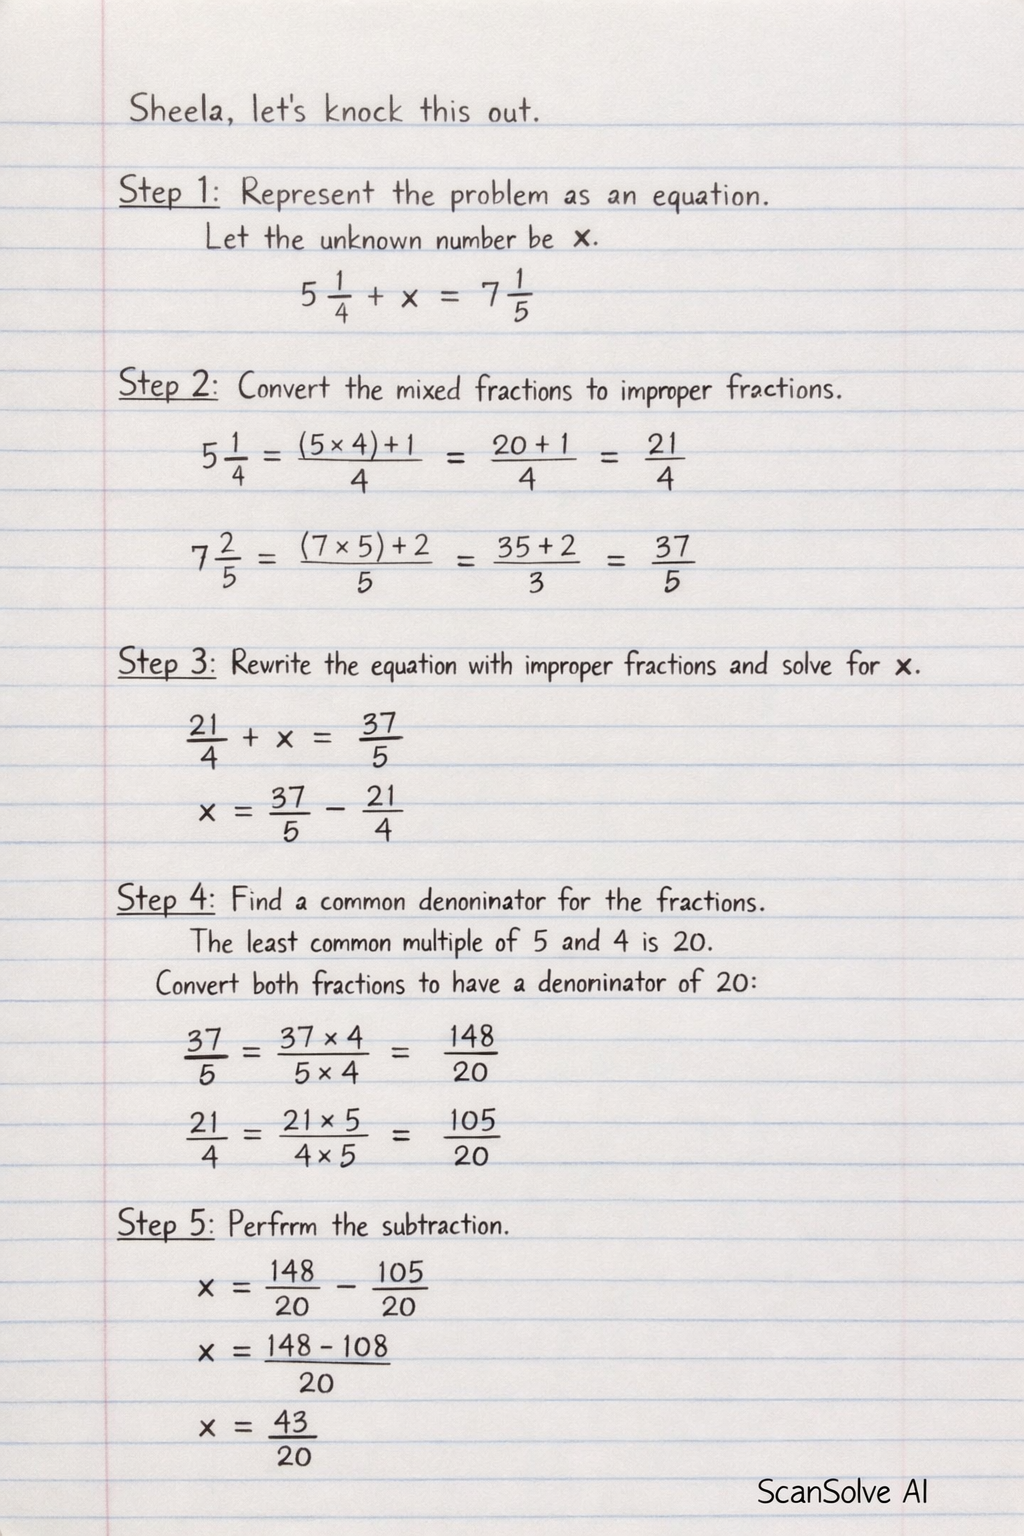 Sheela, let's knock this out.
Step 1: Represent the problem as an equation.
Let the unknown number be x.
5 1/4 + x = 7 1/5
Step 2: Convert the mixed fractions to improper fractions.
5 1/4 = (5 × 4) + 1 / 4 = 20 + 1 / 4 = 21/4
7 2/5 = (7 × 5) + 2 / 5 = 35 + 2 / 3 = 37/5
Step 3: Rewrite the equation with improper fractions and solve for x.
21/4 + x = 37/5
x = 37/5 − 21/4
Step 4: Find a common denoninator for the fractions.
The least common multiple of 5 and 4 is 20.
Convert both fractions to have a denoninator of 20:
37/5 = 37 × 4 / 5 × 4 = 148/20
21/4 = 21 × 5 / 4 × 5 = 105/20
Step 5: Perfrrm the subtraction.
x = 148/20 − 105/20
x = 148 − 108 / 20
x = 43/20
ScanSolve AI